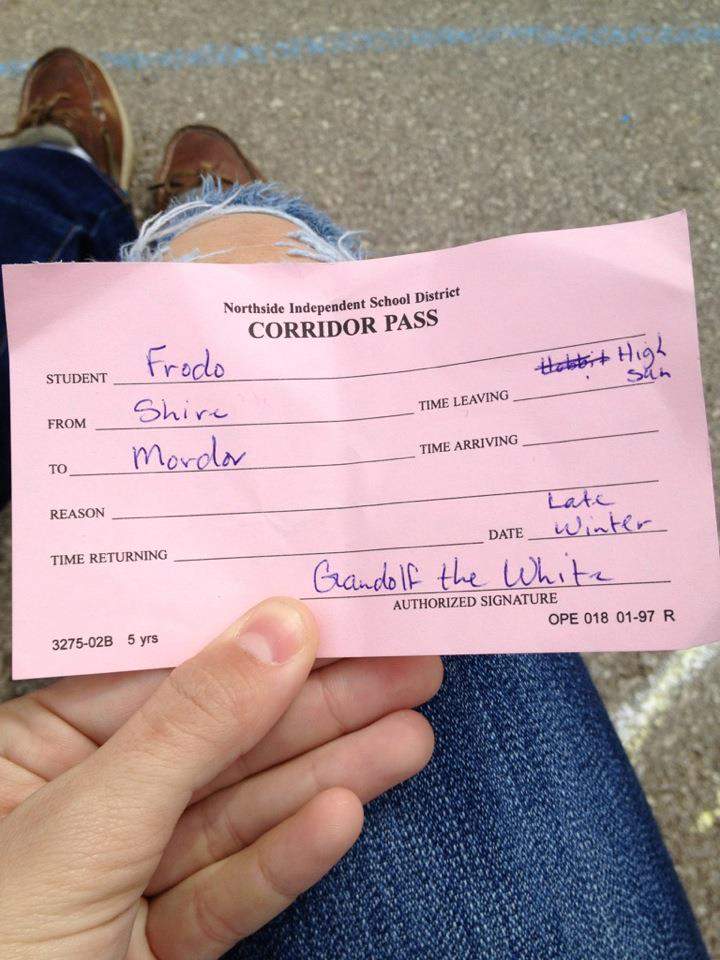 Northside Independent School District
CORRIDOR PASS
STUDENT Frodo
FROM Shire TIME LEAVING Hobbit High
Sun
TO Mordor TIME ARRIVING
REASON
TIME RETURNING DATE Late
Winter
Gandolf the White
AUTHORIZED SIGNATURE
3275-02B 5 yrs OPE 018 01-97 R